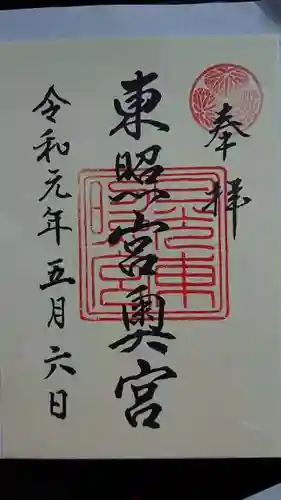 奉拝
東照宮奥宮
令和元年五月六日